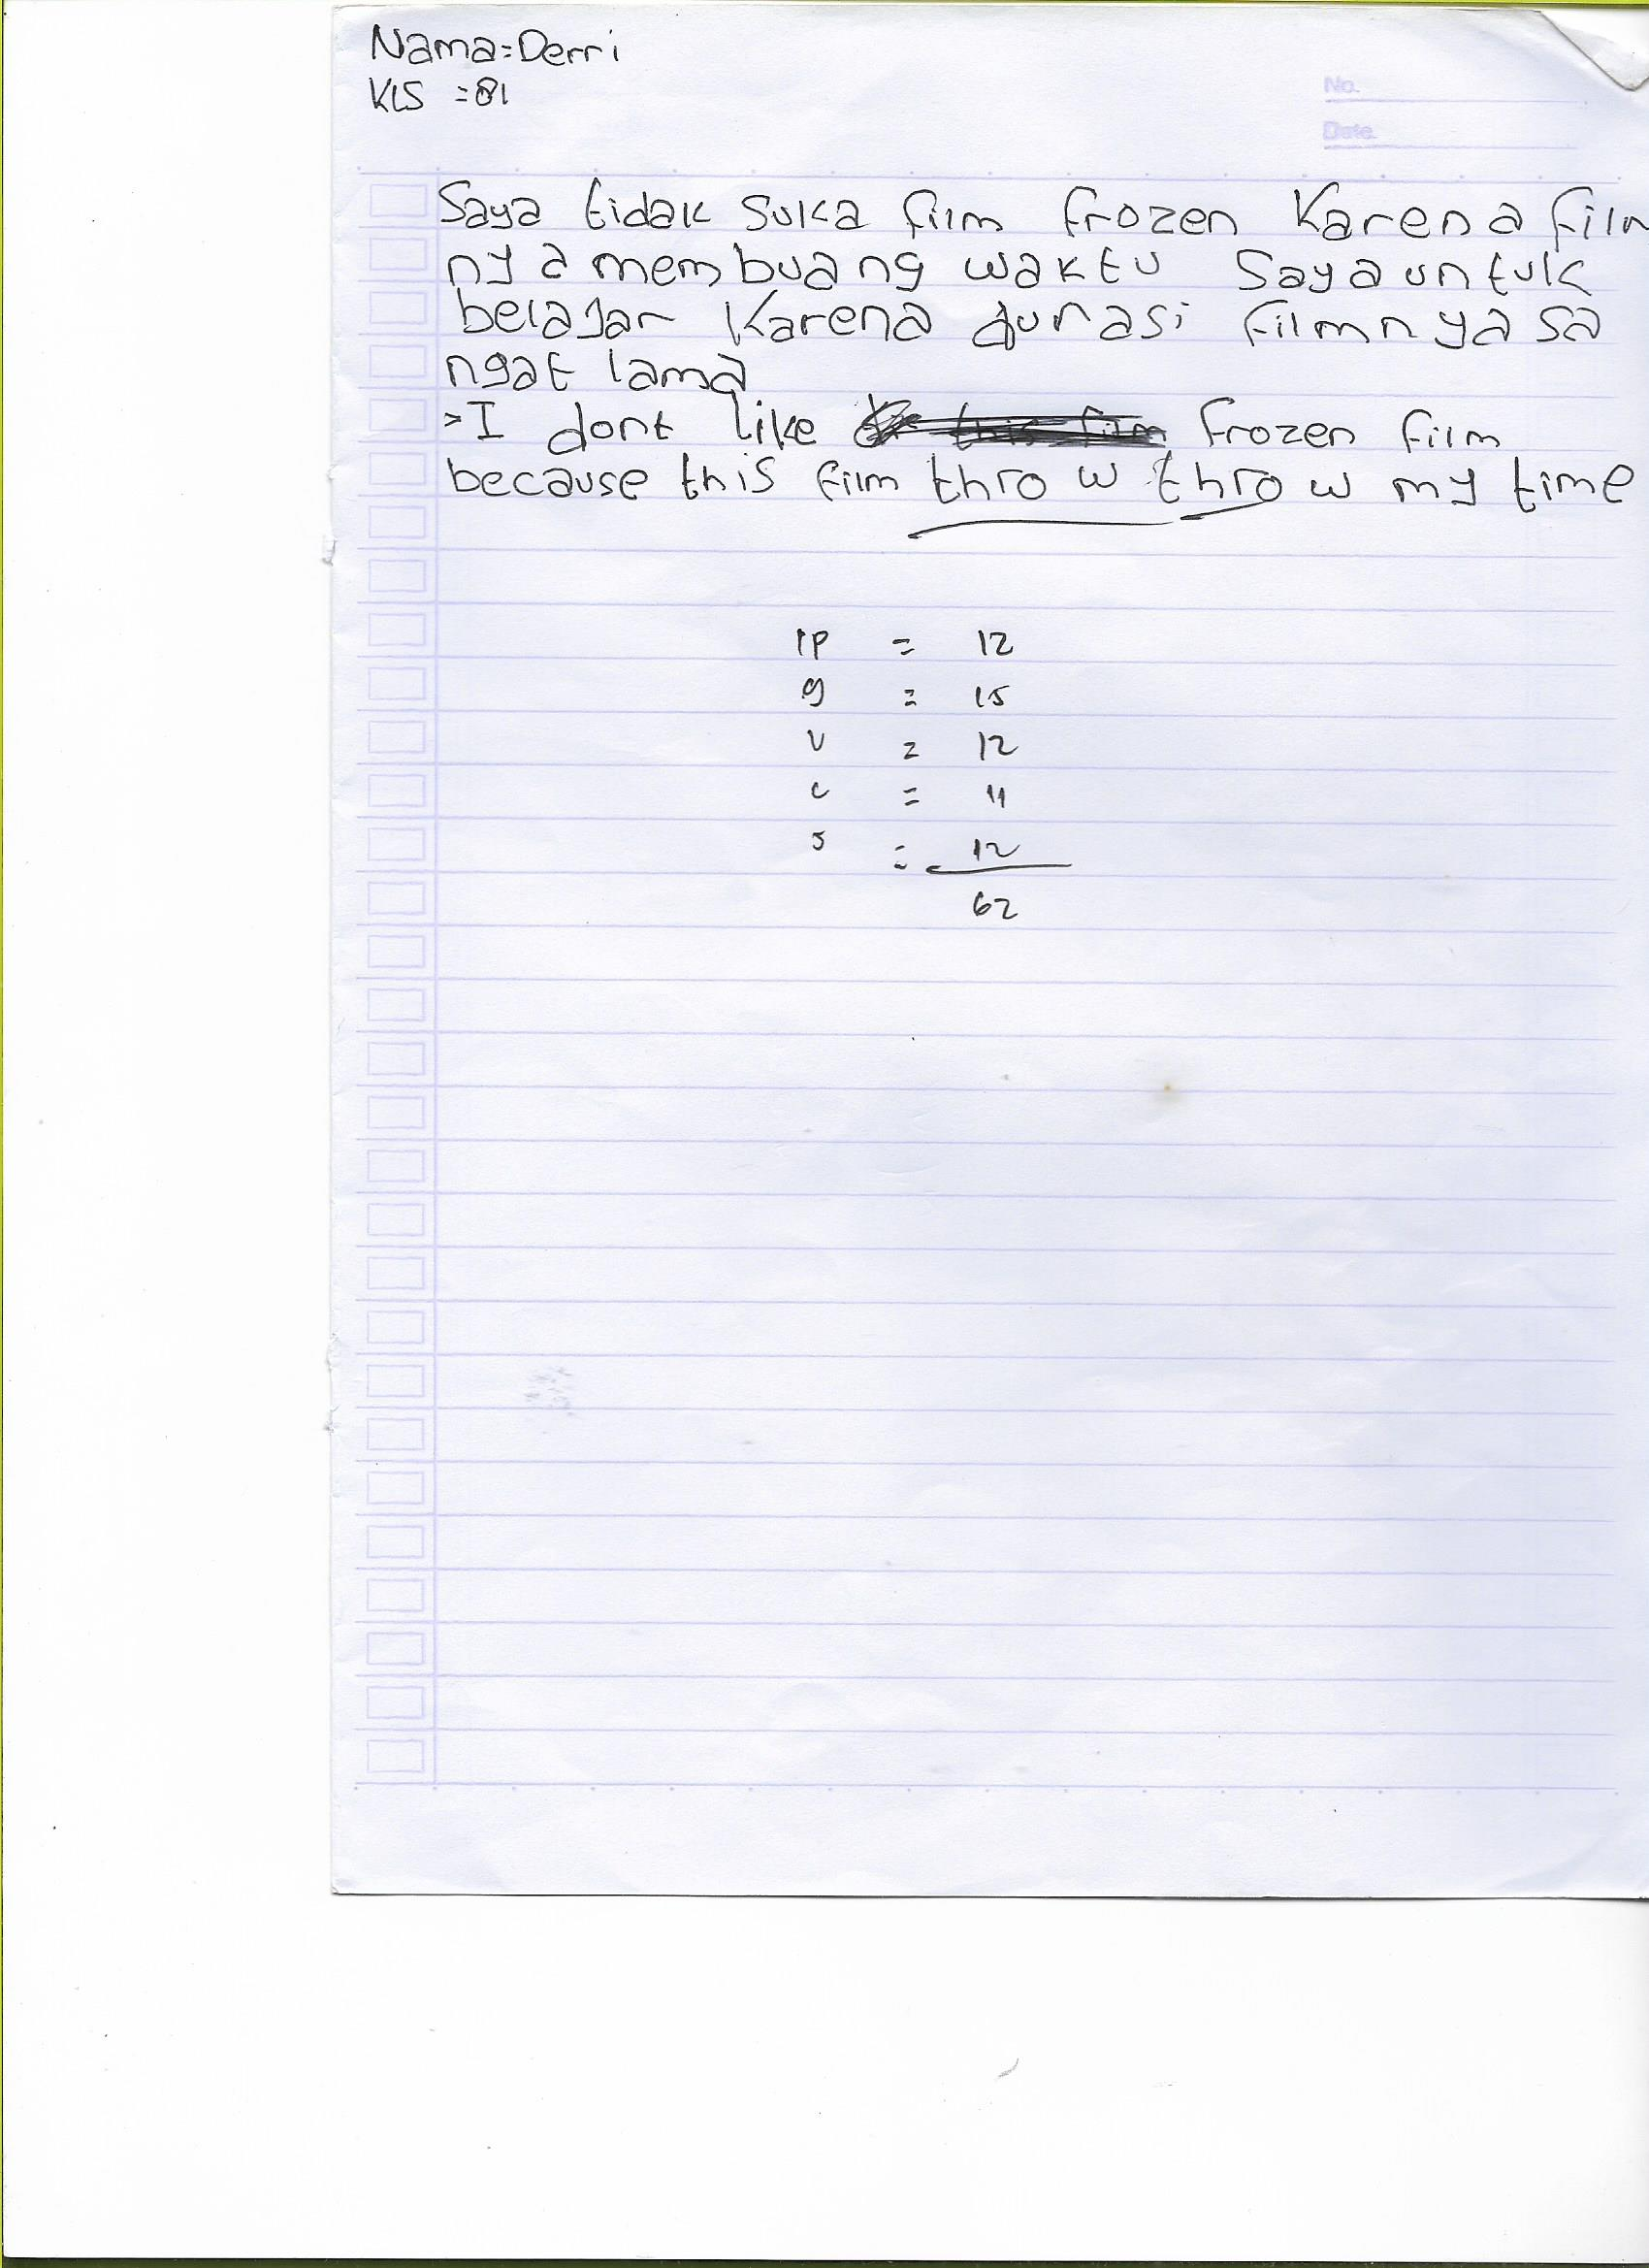 Nama=Derri
KLS =81
No.
Date.
Saya tidak suka film frozen Karena film
nya membuang waktu Saya untuk
belajar Karena durasi filmnya sa
ngat lama
>I dont like this film frozen film
because this film throw throw my time
IP = 12
g = 15
v = 12
c = 11
s = 12
62